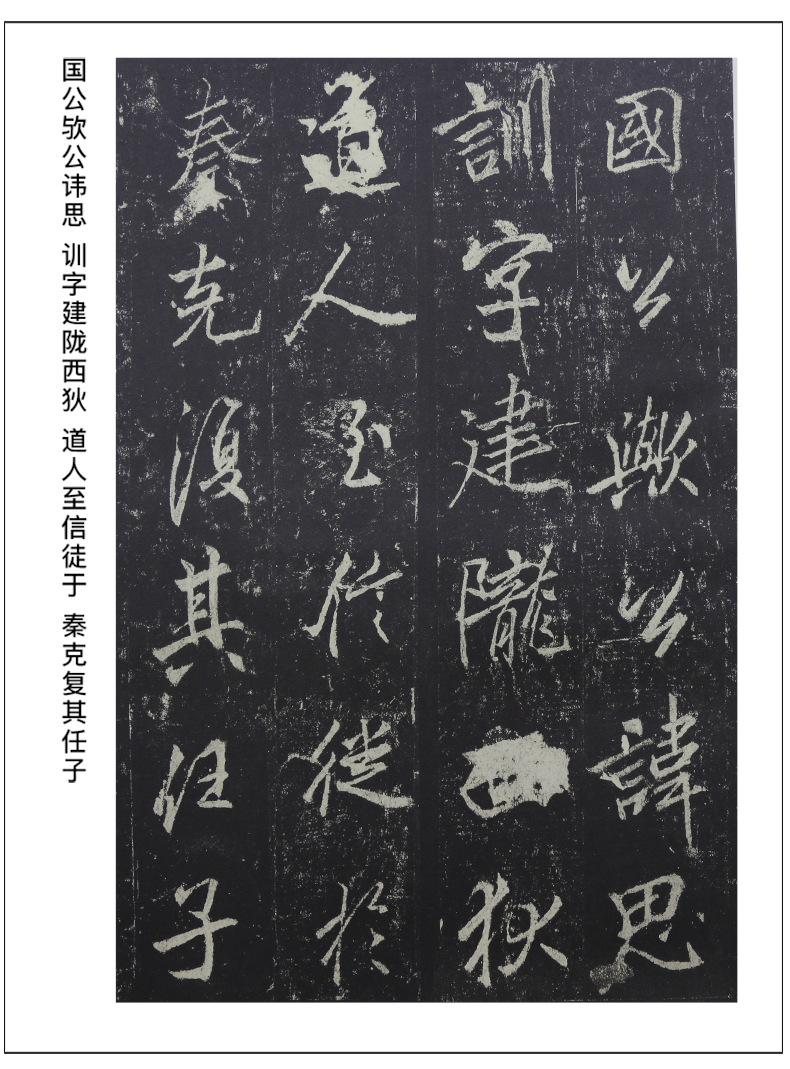 國公歟公諱思
訓字建隴西狄
道人至信徙於
秦克復其任子
国公欤公讳思 训字建陇西狄 道人至信徒于 秦克复其任子